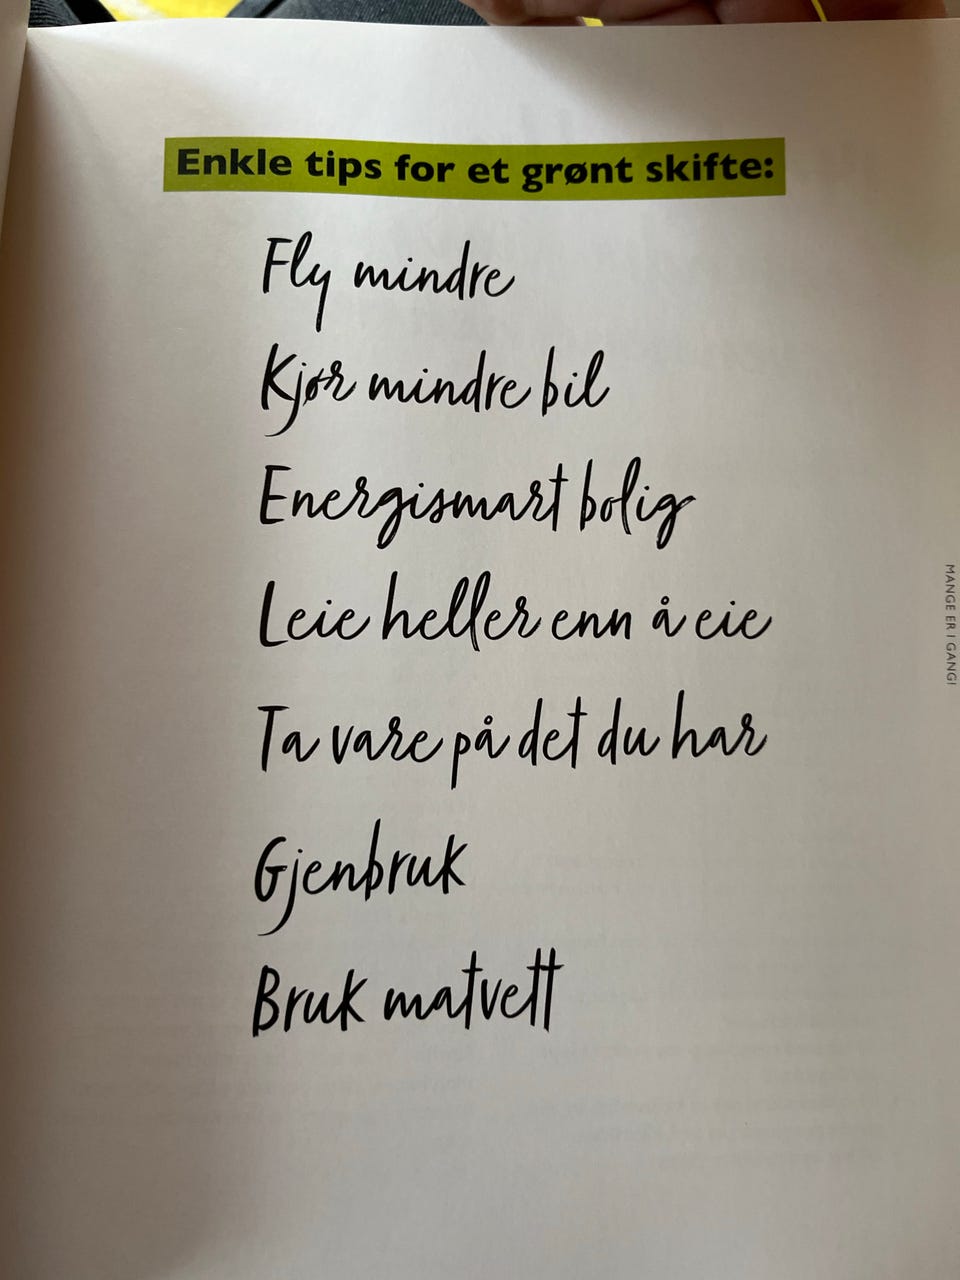 Enkle tips for et grønt skifte:
Fly mindre
Kjør mindre bil
Energismart bolig
Leie heller enn å eie
Ta vare på det du har
Gjenbruk
Bruk matvett
MANGE ER I GANG!